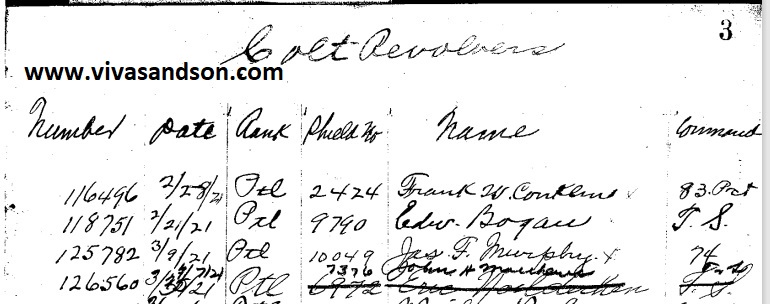 3
Colt Revolvers
www.vivasandson.com
Number Date Rank Shield No Name Command
116496 2/28/21 Ptl 2424 Frank W. Conklin 83 Pct
118751 2/21/21 Ptl 9790 Edw. Bogan T. S.
125782 3/9/21 Ptl 10049 Jas. F. Murphy x 74
7376 John H
126560 /21 Ptl 6972 Eric T. S.